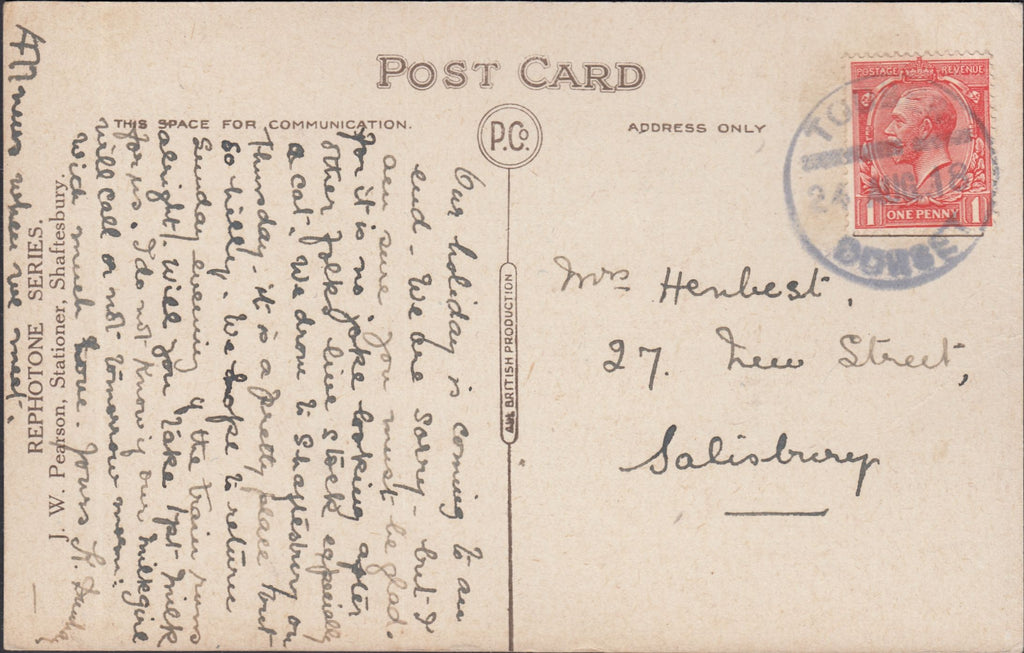 POST CARD
THIS SPACE FOR COMMUNICATION.
P.Co.
ADDRESS ONLY
ALL BRITISH PRODUCTION
POSTAGE REVENUE
1 ONE PENNY 1
24 AUG 18
DORSET
Mrs Henbest,
27. New Street,
Salisbury
Our holiday is coming to an
end - We are sorry - but I
am sure you must be glad.
for it is no joke looking after
other folks live stock especially
a cat. We drove to Shaftesbury on
Thursday - it is a pretty place but
so hilly. We hope to return
Sunday evening if the train runs
alright. Will you take 1pt milk
for us. I do not know if our milkgirl
will call or not tomorrow morn:
With much love. Yours
All news when we meet.
REPHOTONE SERIES.
J. W. Pearson, Stationer, Shaftesbury.